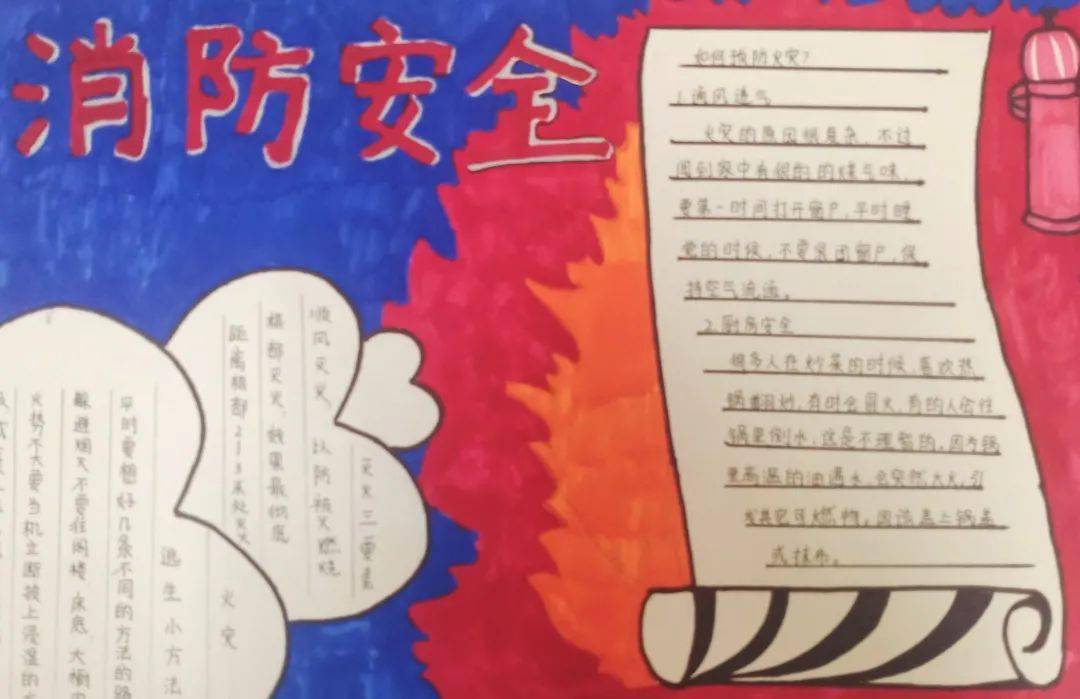 消防安全
如何预防火灾?
1.通风透气
火灾的原因很复杂,不过
闻到家中有很的的煤气味,
要第一时间打开窗户,平时睡
觉的时候,不要紧闭窗户,保
持空气流通。
2.厨房安全
很多人在炒菜的时候,喜欢热
锅翻炒,有时会冒火,有的人会往
锅里倒水,这是不理智的,因为锅
里高温的油遇水,会突然大火,引
发其它可燃物,因该盖上锅盖
或抹布。
灭火三要素
顺风灭火,以防被火燃烧
根部灭火,效果最彻底
距离根部2—3米处灭火
火灾
逃生小方法
平时要想好几条不同的方法的路
躲避烟火不要往阁楼 床底 大橱内
火势不大要当机立断披上浸湿的